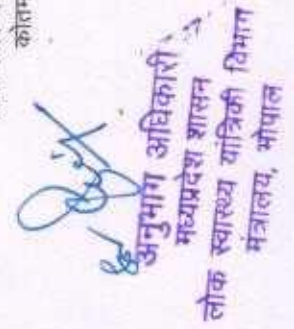 कोतम
अनुभाग अधिकारी
मध्यप्रदेश शासन
लोक स्वास्थ्य यांत्रिकी विभाग
मंत्रालय, भोपाल